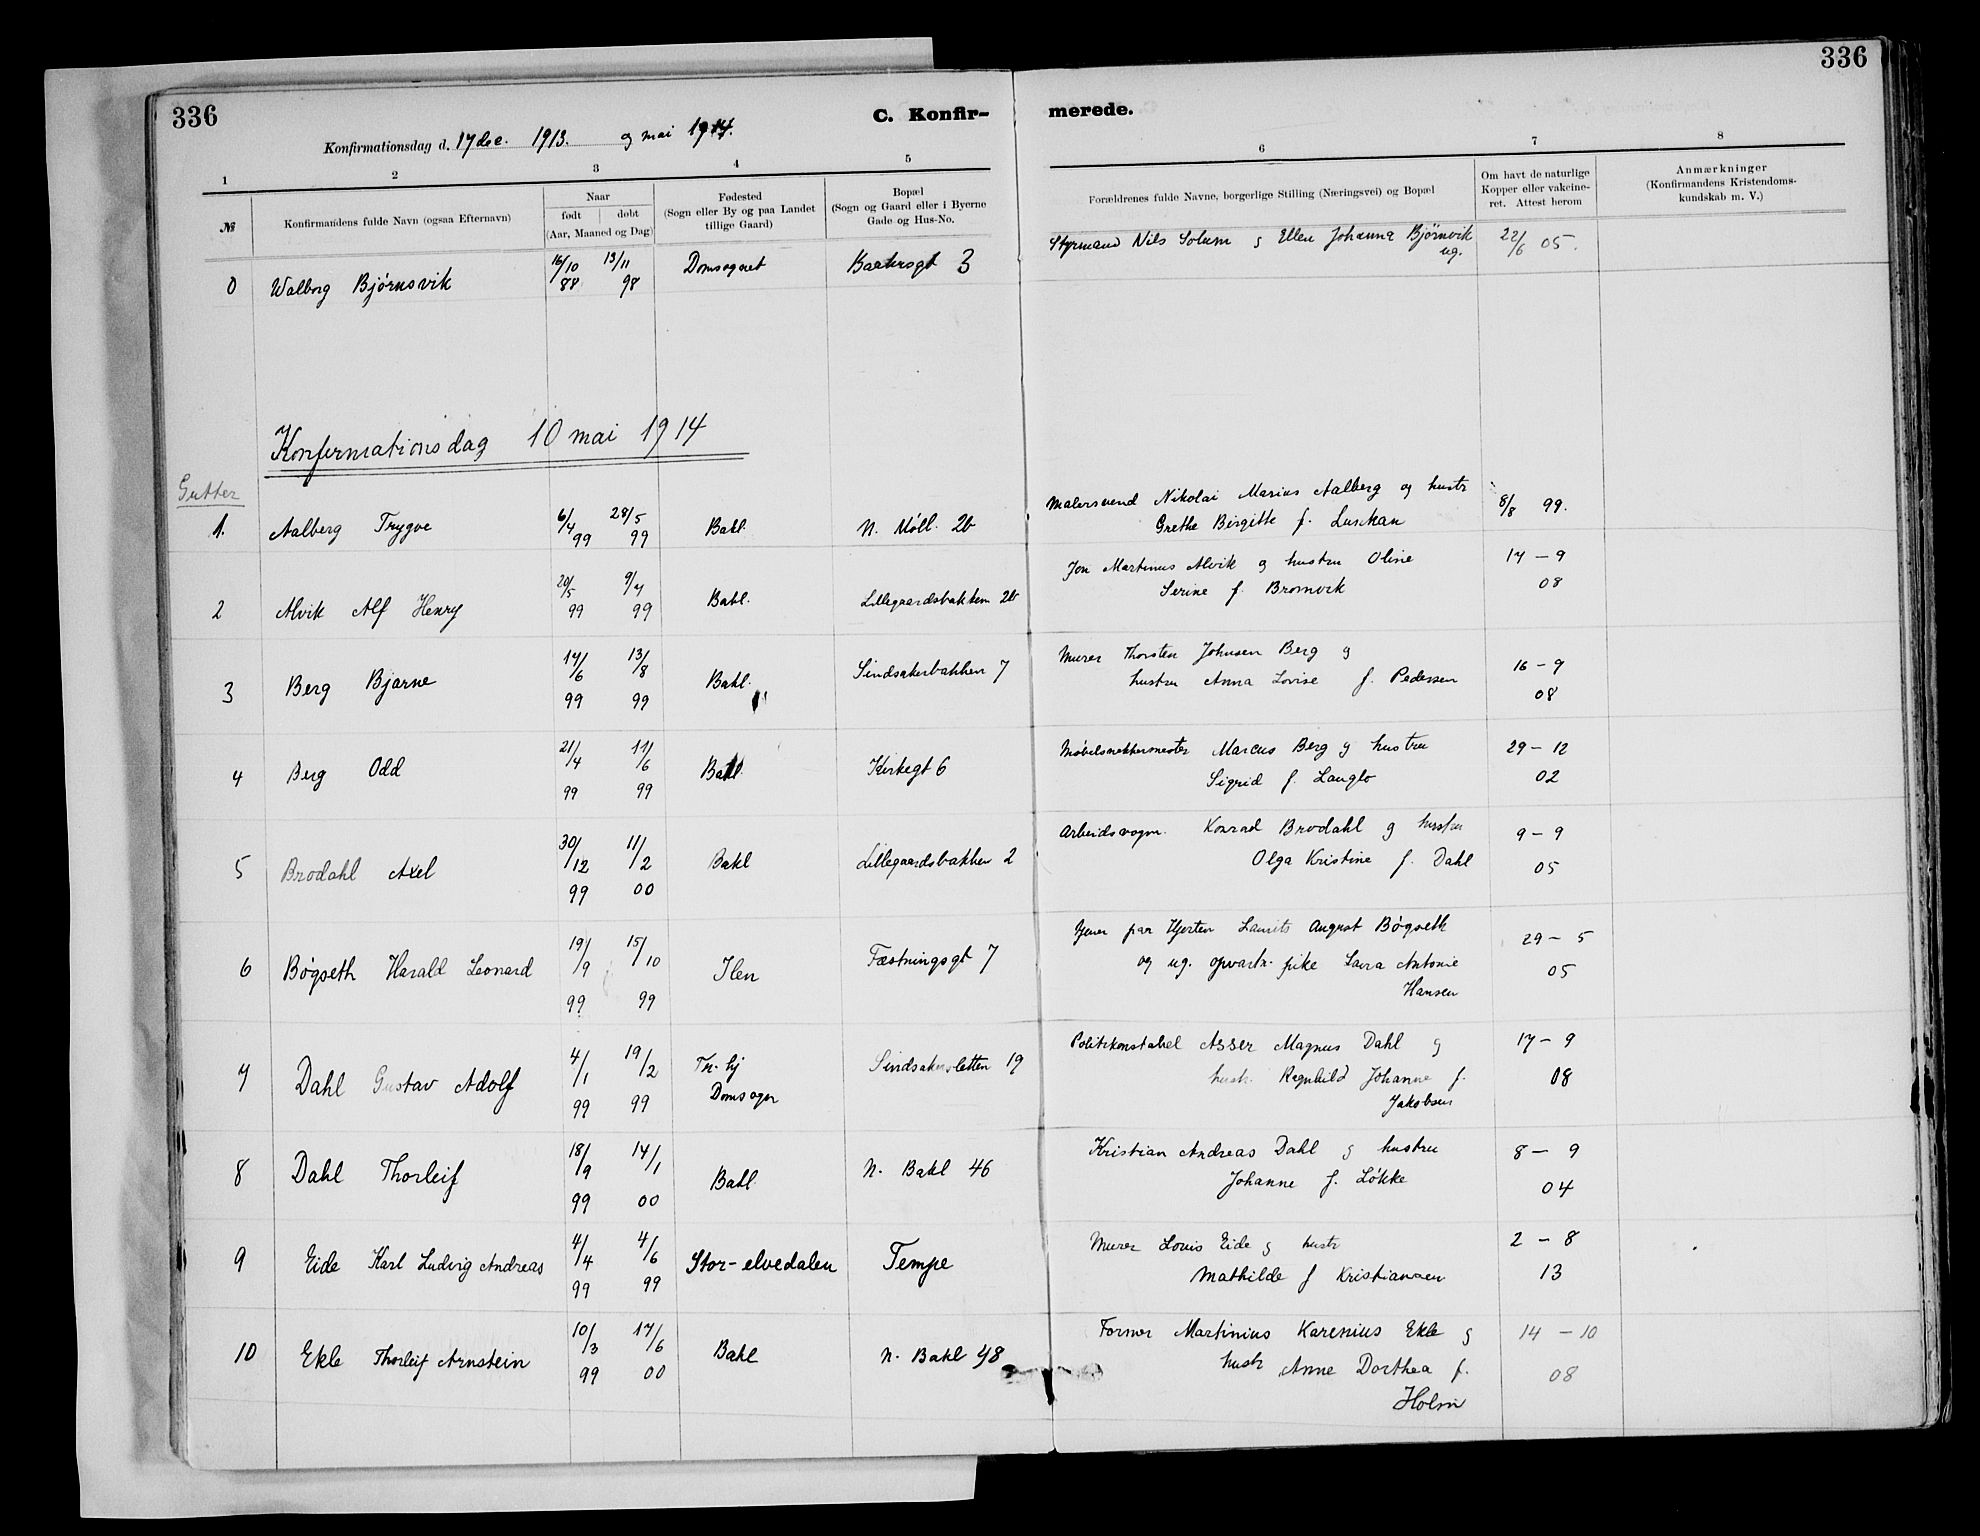 336
336
C. Konfir-
merede.
Konfirmationsdag d. 17 dec. 1913. og mai 1914.
1 2 3 4 5 6 7 8
№
Konfirmandens fulde Navn (ogsaa Efternavn)
Naar
født døbt
(Aar, Maaned og Dag)
Fødested
(Sogn eller By og paa Landet
tillige Gaard)
Bopæl
(Sogn og Gaard eller i Byerne
Gade og Hus-No.
Forældrenes fulde Navne, borgerlige Stilling (Næringsvei) og Bopæl
Om havt de naturlige
Kopper eller vakcine-
ret. Attest herom
Anmærkninger
(Konfirmandens Kristendoms-
kundskab m. V.)
Styrmand Nils Solum g Ellen Johanna Bjørnvik 22/6 05.
ug.
16/10 13/11 Domsognet 3
0 Walborg Bjørnsvik 88 98
Konfirmationsdag 10 mai 1914
Gutter
Malersvend Nikolai Marius Aalberg og hustr 8/8 99.
6/4 28/5
1. Aalberg Trygve 99 99 Bakl. N. Møll. 2b Grethe Birgitte f.
Jon Martinus Alvik g hustru Oline 17 - 9
20/5 9/7
2 Alvik Alf Henry 99 99 Bakl. Lillegaardsbakken 2b Serine f. Bromvik 08
Murer Thorsten Johnsen Berg g
14/6 13/8 16 - 9
3 Berg Bjarne 99 99 Bakl. Sindsakerbakken 7 hustru Anna Lovise f. Pedersen 08
Møbelsnekkermester Marcus Berg g hustru 29 - 12
21/4 11/6
4 Berg Odd 99 99 Bakl. Kirkegt 6 Sigrid f. Langlo 02
Arbeidsvogm. Konrad Brodahl g hustru 9 - 9
30/12 11/2
5 Brodahl Axel 99 00 Bakl Lillegaardsbakken 2 Olga Kristine f. Dahl 05
Hjorten Laurits August Bøgseth
19/9 15/10 29 - 5
6 Bøgseth Harald Leonard 99 99 Ilen Fæstningsgt 7 og ug. opvartn. pike Laura Antonie 05
Hansen
Politikonstabel Asser Magnus Dahl g 17 - 9
4/1 19/2 Tr. hj
7 Dahl Gustav Adolf 99 99 Domsogn Sindsakersletten 19 hustr. Ragnhild Johanne f. 08
Jakobsen
Kristian Andreas Dahl g hustru 8 - 9
18/9 14/1
8 Dahl Thorleif 99 00 Bakl N. Bakl 46 Johanne f. Løkke 04
Murer Louis Eide g hustr 2 - 8
4/4 4/6
9 Eide Karl Ludvig Andreas 99 99 Stor-elvedalen Tempe Mathilde f Kristiansen 13
Former Martinius Karenius Ekle g 14 - 10
10/3 17/6
10 Ekle Thorleif Arnstein 99 00 Bakl N. Bakl 48 hustr Anne Dorthea f. 08
Holm